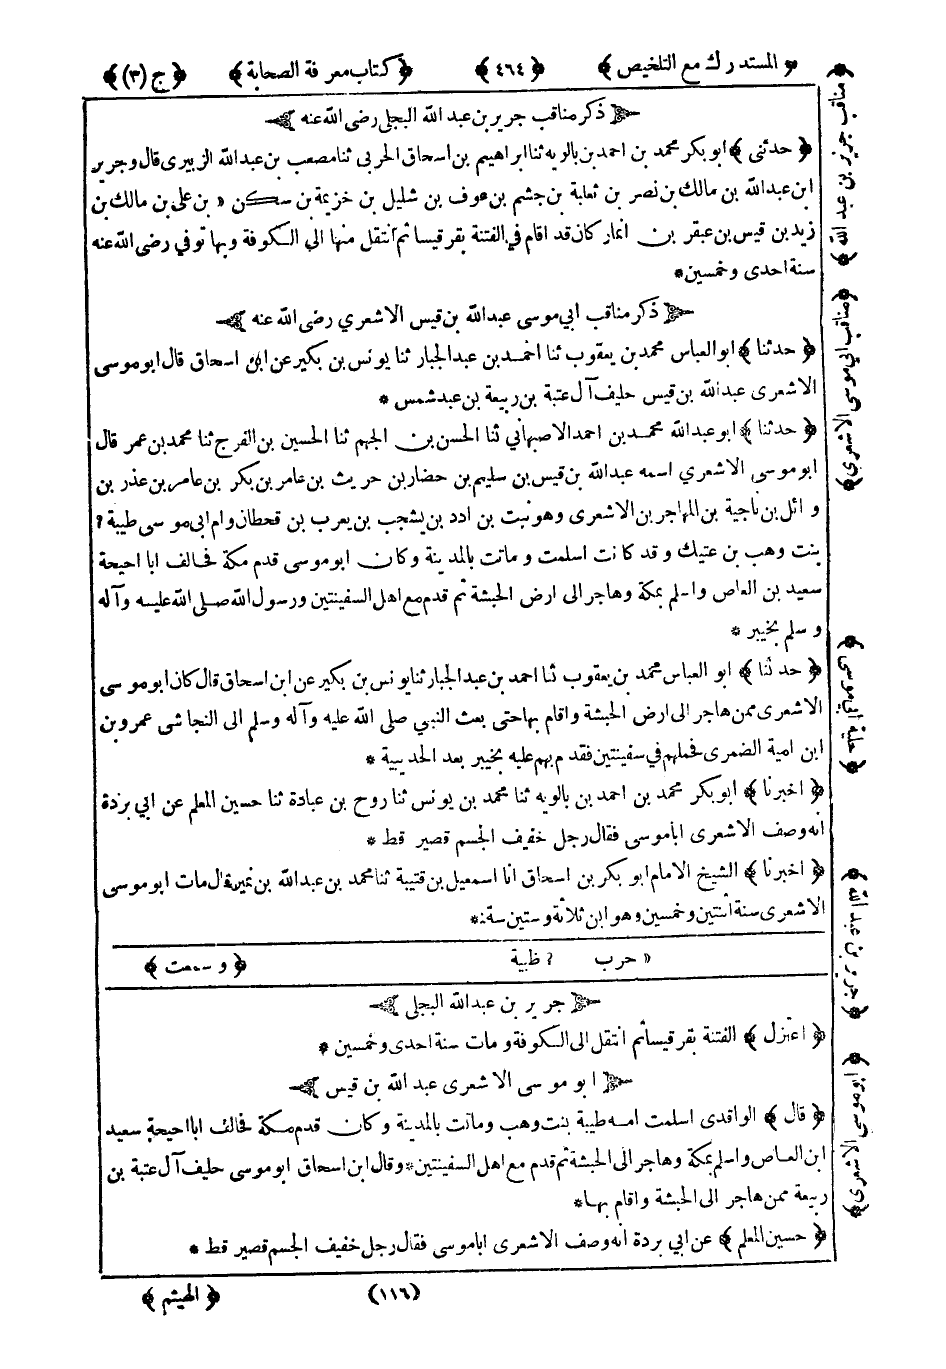 ﴿ المستدرك مع التلخيص ﴾ ﴿ ٤٦٤ ﴾ ﴿ كتاب معرفة الصحابة ﴾ ﴿ ج (٣) ﴾
ذكر مناقب جرير بن عبد الله البجلى رضى الله عنه
﴿ حدثنى ﴾ ابو بكر محمد بن احمد بن بالويه ثنا ابراهيم بن اسحاق الحربى ثنا مصعب بن عبد الله الزبيرى قال وجرير
ابن عبد الله بن مالك بن نصر بن ثعابة بن جشم بن عوف بن شليل بن خزيمة بن سكن « بن على بن مالك بن
زيد بن قيس بن عبقر بن انمار كان قد اقام في الفتنة بقرقيسا ثم انتقل منها الى الكوفة وبها توفي رضى الله عنه
سنة احدى وخمسين*
ذكر مناقب ابي موسى عبد الله بن قيس الاشعري رضى الله عنه
﴿ حدثنا ﴾ ابو العباس محمد بن يعقوب ثنا احمد بن عبد الجبار ثنا يونس بن بكير عن ابن اسحاق قال ابو موسى
الاشعرى عبد الله بن قيس حليف آل عتبة بن ربيعة بن عبد شمس *
﴿ حدثنا ﴾ ابو عبد الله محمد بن احمد الاصبهاني ثنا الحسن بن الجهم ثنا الحسين بن الفرج ثنا محمد بن عمر قال
ابو موسى الاشعري اسمه عبد الله بن قيس بن سليم بن حضار بن حريث بن عامر بن بكر بن عامر بن عذر بن
وائل بن ناجية بن المهاجر بن الاشعرى وهو نبت بن ادد بن يشجب بن يعرب بن قحطان وام ابى موسى طيبة ؟
بنت وهب بن عتيك وقد كانت اسلمت وماتت بالمدينة وكان ابو موسى قدم مكة فحالف ابا احيحة
سعيد بن العاص واسلم بمكة وهاجر الى ارض الحبشة ثم قدم مع اهل السفينتين ورسول الله صلى الله عليه وآله
وسلم بخيبر *
﴿ حدثنا ﴾ ابو العباس محمد بن يعقوب ثنا احمد بن عبد الجبار ثنا يونس بن بكير عن ابن اسحاق قال كان ابو موسى
الاشعرى ممن هاجر الى ارض الحبشة واقام بها حتى بعث النبي صلى الله عليه وآله وسلم الى النجاشى عمرو بن
ابن امية الضمرى فحملهم في سفينتين فقدم بهم عليه بخيبر بعد الحديبية *
﴿ اخبرنا ﴾ ابو بكر محمد بن احمد بن بالويه ثنا محمد بن يونس ثنا روح بن عبادة ثنا حسين المعلم عن ابي بردة
انه وصف الاشعرى اباموسى فقال رجل خفيف الجسم قصير قط *
﴿ اخبرنا ﴾ الشيخ الامام ابو بكر بن اسحاق انا اسمعيل بن قتيبة ثنا محمد بن عبد الله بن نمير قال مات ابو موسى
الاشعرى سنة اثنتين وخمسين وهو ابن ثلاثة وستين سنة*
« حرب ؟ ظبية ﴿ وسمعت ﴾
جرير بن عبد الله البجلى
﴿ اعتزل ﴾ الفتنة بقرقيسا ثم انتقل الى الكوفة ومات سنة احدى وخمسين *
ابو موسى الاشعرى عبد الله بن قيس
﴿ قال ﴾ الواقدى اسلمت امه طيبة بنت وهب وماتت بالمدينة وكان قدم مكة فحالف ابا احيحة سعيد
ابن العاص واسلم بمكة وهاجر الى الحبشة ثم قدم مع اهل السفينتين* وقال ابن اسحاق ابو موسى حليف آل عتبة بن
ربيعة ممن هاجر الى الحبشة واقام بها*
﴿ حسين المعلم ﴾ عن ابي بردة انه وصف الاشعرى اباموسى فقال رجل خفيف الجسم قصير قط *
(١١٦) ﴿ الهيثم ﴾
﴿ مناقب جرير بن عبد الله ﴾
﴿ مناقب ابي موسى الاشعري ﴾
﴿ حلية ابي موسى ﴾
﴿ جرير بن عبد الله ﴾
﴿ ابو موسى الاشعرى ﴾